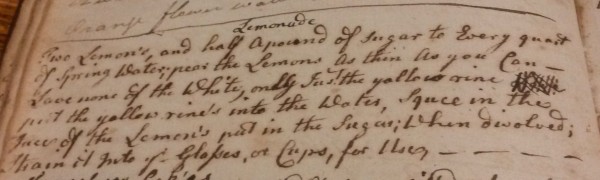 Orange flower wa
Lemonade
Two Lemon's, and half a pound of Sugar to Every quart
of Spring Water; pear the Lemons as thin As you Can
Lave none of the White, only Jus the yallow rine
put the yallow rine's into the Water, Squce in the
Juce of the Lemon's put in the Sugar; When dwolved;
Strain it Into ye Glases, or Cups, for Use,